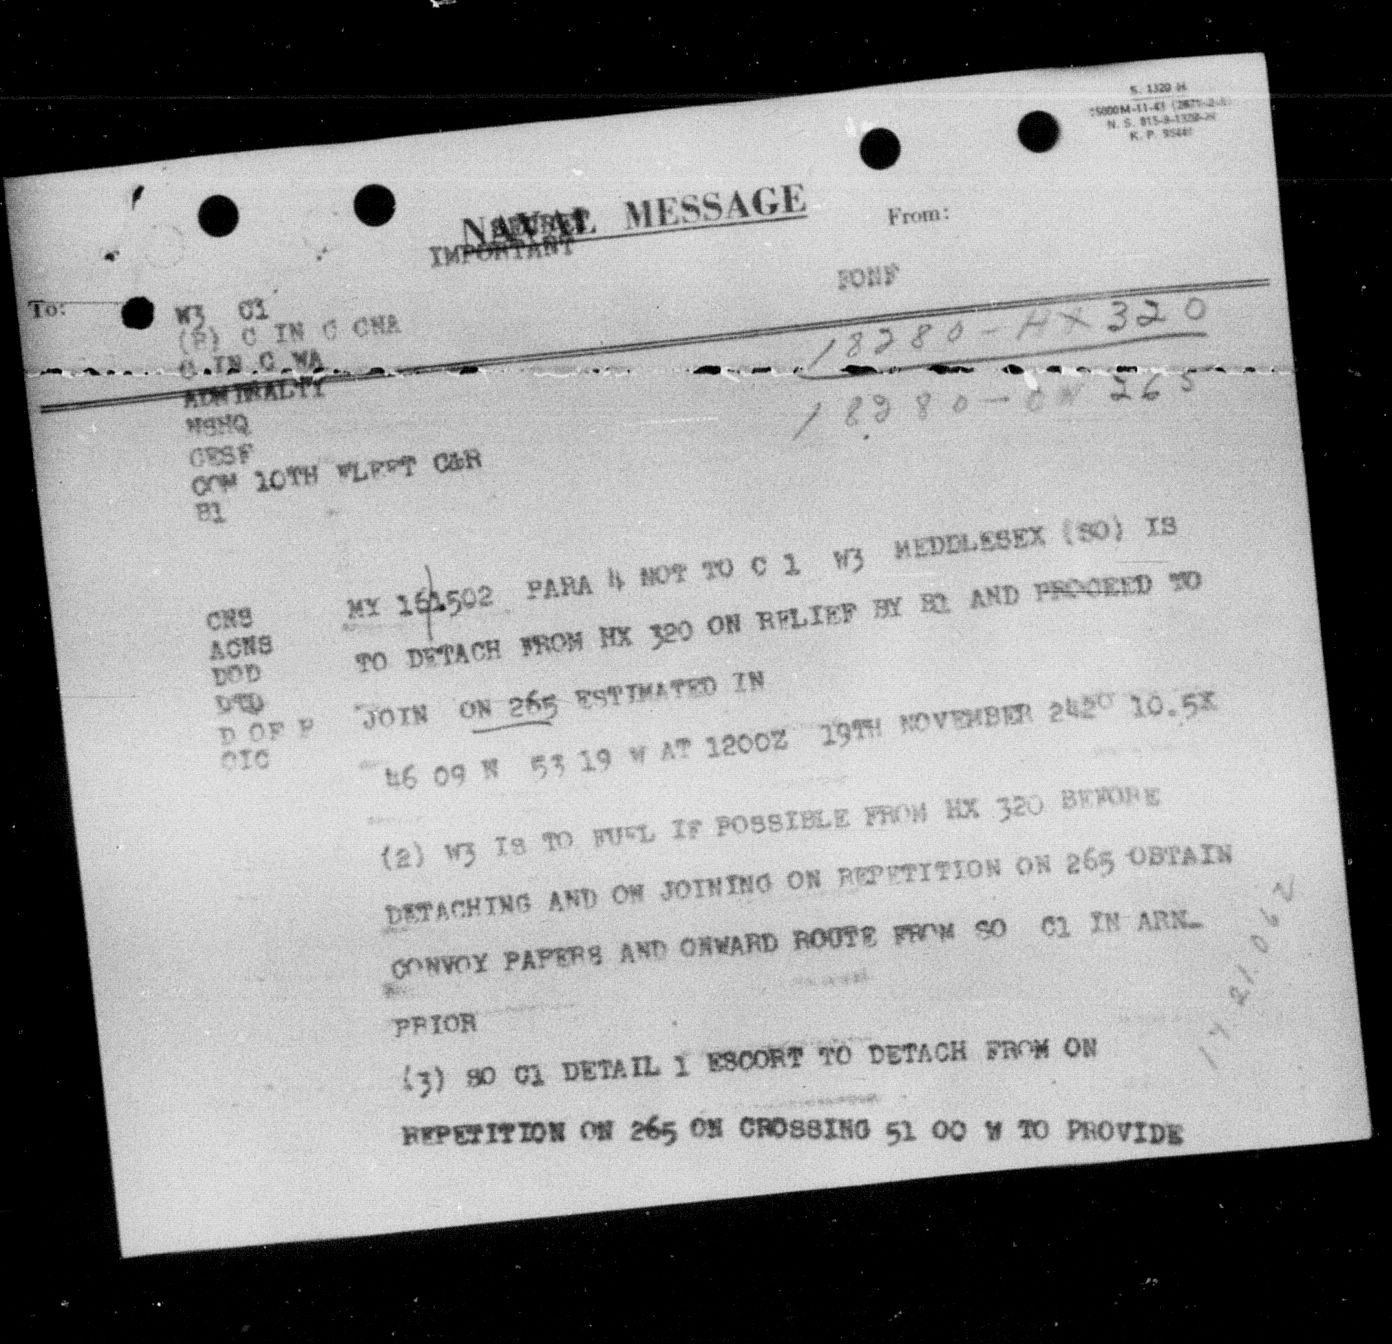 S. 1320 H
N. S. 815-9-1320-H
NAVAL MESSAGE
SECRET
IMPORTANT
From:
FONF
To:
W3 C1
(R) C IN C CNA
C IN C WA
ADMIRALTY
NSHQ
CESF
COM 10TH FLEET C&R
B1
18280 - HX 320
18280 - ON 265
MY 161502 PARA 4 NOT TO C 1 W3 MEDDLESEX (SO) IS
TO DETACH FROM HX 320 ON RELIEF BY B1 AND PROCEED TO
JOIN ON 265 ESTIMATED IN
46 09 N 53 19 W AT 1200Z 19TH NOVEMBER 242° 10.5K
CNS
ACNS
DOD
DTD
D OF P
OIC
(2) W3 IS TO FUEL IF POSSIBLE FROM HX 320 BEFORE
DETACHING AND ON JOINING ON REPETITION ON 265 OBTAIN
CONVOY PAPERS AND ONWARD ROUTE FROM SO C1 IN ARN_
PRIOR
(3) SO C1 DETAIL 1 ESCORT TO DETACH FROM ON
REPETITION ON 265 ON CROSSING 51 00 W TO PROVIDE
17 2106Z